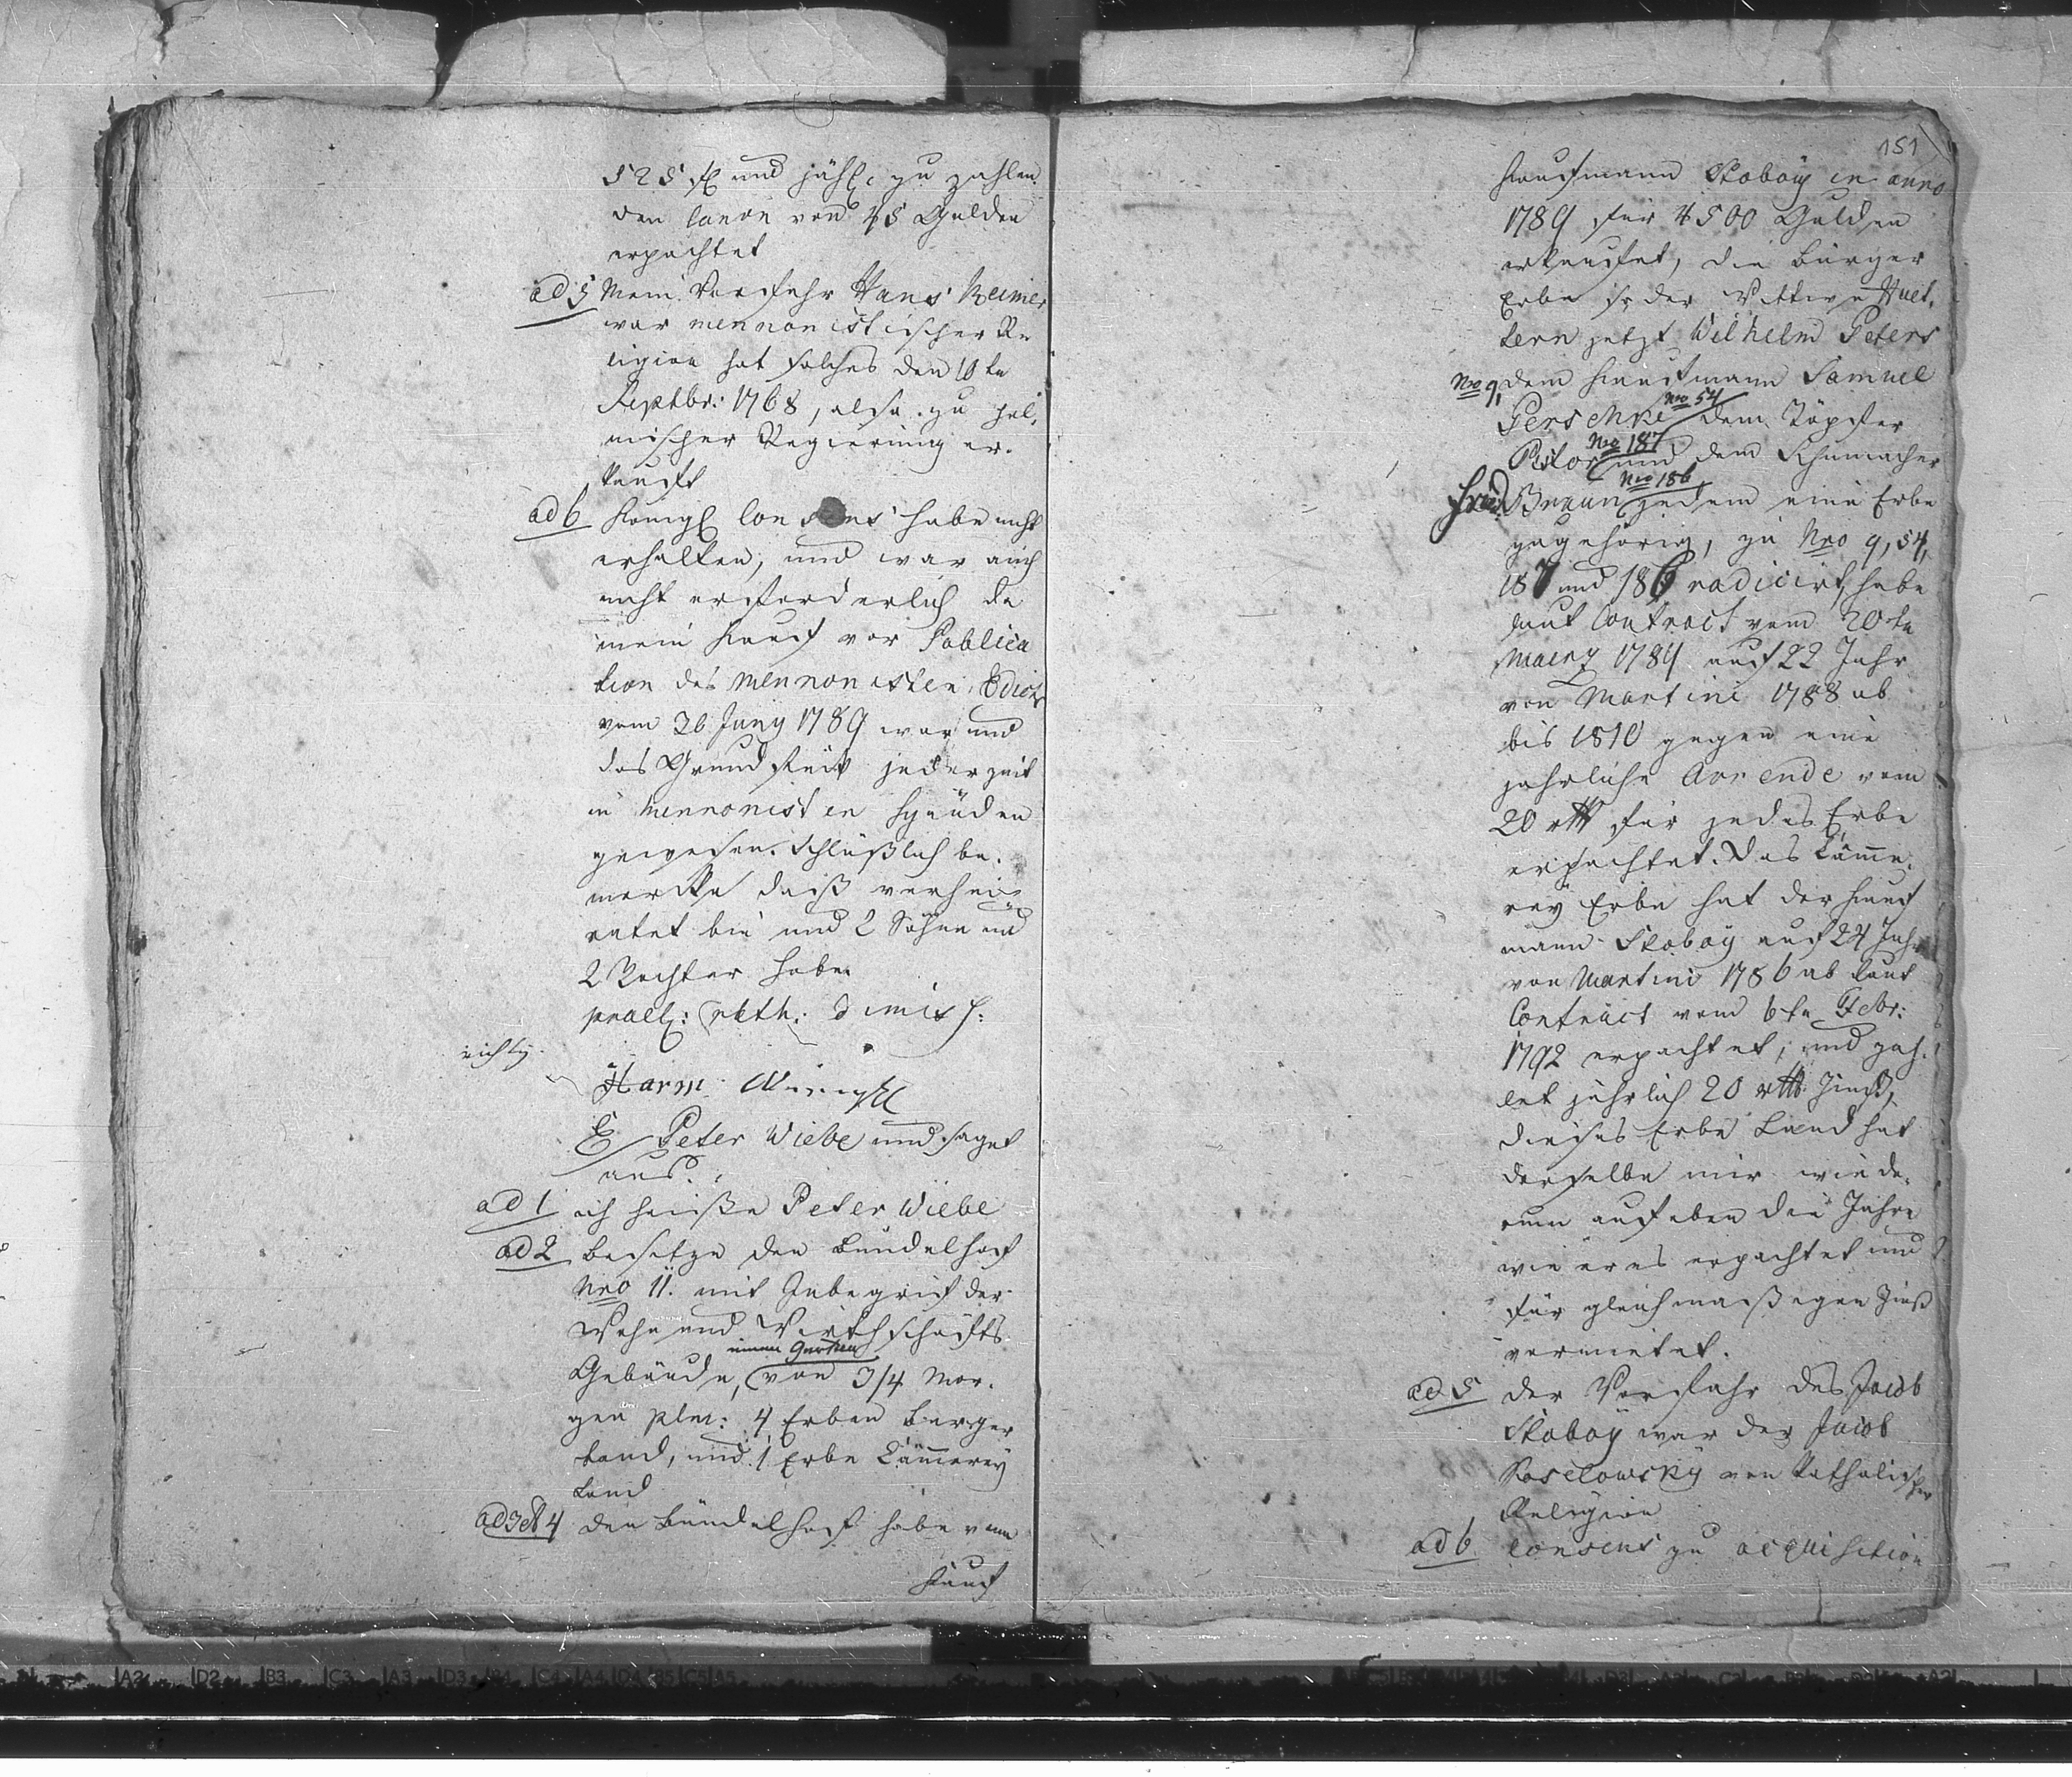 525 fl und jährl. zu zahlen
den Canon von 45 Gulden
erpachtet
ad 5 Mein Vorfahr Hans Reimer
war mennonistischer Re
ligion hat solches den 10te
Septbr: 1768, also zu pol,
nischer Regierung er.
kauft
ad 6 Königl Consens habe nicht
erhalten, und war auch
nicht erforderlich da
mein Kauf vor Publica
tion des Mennonisten Edicts
vom 26 Juny 1789 war und
das Grundstück jederzeit
in Mennonisten Händen
gewesen. Schlüßlich be.
mercke daß verhei
ratet bin und 2 Söhne und
2 Töchter habe.
prael: rkth: dimiss:
richtig.
Harm
E Peter Wiebe und saget
aus.
ad 1 ich heiße Peter Wiebe
ad 2 besitze den Bündelhof
Nro 11. mit Inbegrif der
Wohn und Wirthschafts
einen Garten
Gebäude, von 3/4 Mor.
gen plm: 4 Erben Burger
Land, und 1 Erbe Cämmerey
Land
ad 3 et 4 den Bündelhof habe vom
Kauf
151
Kaufmann Skoboy in anno
1789 für 4500 Gulden
erkaufet, die Bürger
Erbe so der Wittwe Huel,
lern jetzt Wilhelm Peters
Nro 9, dem Kaufmann Samuel
Nro 54
Gerschke dem Töpfer
Nro 187
Pilor und dem Schumacher
Nro 186
Fried. Braun jedem eine Erbe
zugehörig, zu Nro 9, 54,
187 und 186 radicirt, habe
laut Contract vom 20te
Maerz 1789 auf 22 Jahr
von Martini 1788 ab
bis 1810 gegen eine
jahrliche Arrende vom
20 rth für jedes Erbe
erpachtet. Das Cämme,
rey Erbe hat der Kauf
mann Skoboy auf 24 Jahr
von Martini 1786 ab laut
Contract vom 6te Febr:
1792 erpachtet, und zah,
let jährlich 20 rth Zinß,
dieses Erbe Land hat
derselbe mir wiede,
rum auf eben die Jahre
wie er es erpachtet und
für gleichmaßigen Zinß
vermietet.
ad 5 der Vorfahr des Jacob
Skoboy war der Jacob
Koselowsky von katholischer
Religion
ad 6 Consens zu acquisition